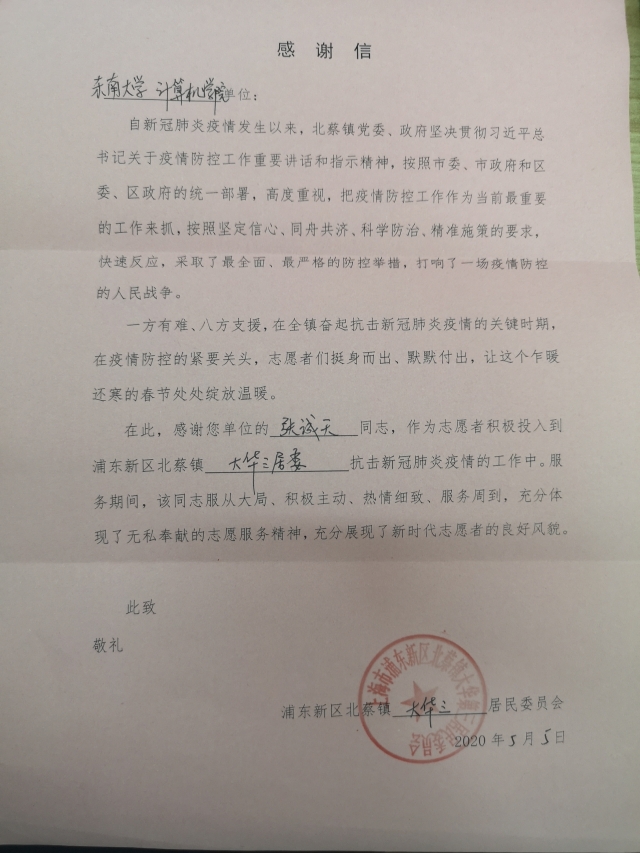 感谢信
东南大学 计算机学院单位：
自新冠肺炎疫情发生以来，北蔡镇党委、政府坚决贯彻习近平总
书记关于疫情防控工作重要讲话和指示精神，按照市委、市政府和区
委、区政府的统一部署，高度重视，把疫情防控工作作为当前最重要
的工作来抓，按照坚定信心、同舟共济、科学防治、精准施策的要求，
快速反应，采取了最全面、最严格的防控举措，打响了一场疫情防控
的人民战争。
一方有难、八方支援，在全镇奋起抗击新冠肺炎疫情的关键时期，
在疫情防控的紧要关头，志愿者们挺身而出、默默付出，让这个乍暖
还寒的春节处处绽放温暖。
在此，感谢您单位的 张诚天 同志，作为志愿者积极投入到
浦东新区北蔡镇 大华三居委 抗击新冠肺炎疫情的工作中。服
务期间，该同志服从大局、积极主动、热情细致、服务周到，充分体
现了无私奉献的志愿服务精神，充分展现了新时代志愿者的良好风貌。
此致
敬礼
上海市浦东新区北蔡镇大华第三居民委员会
浦东新区北蔡镇 大华三 居民委员会
2020年5月5日